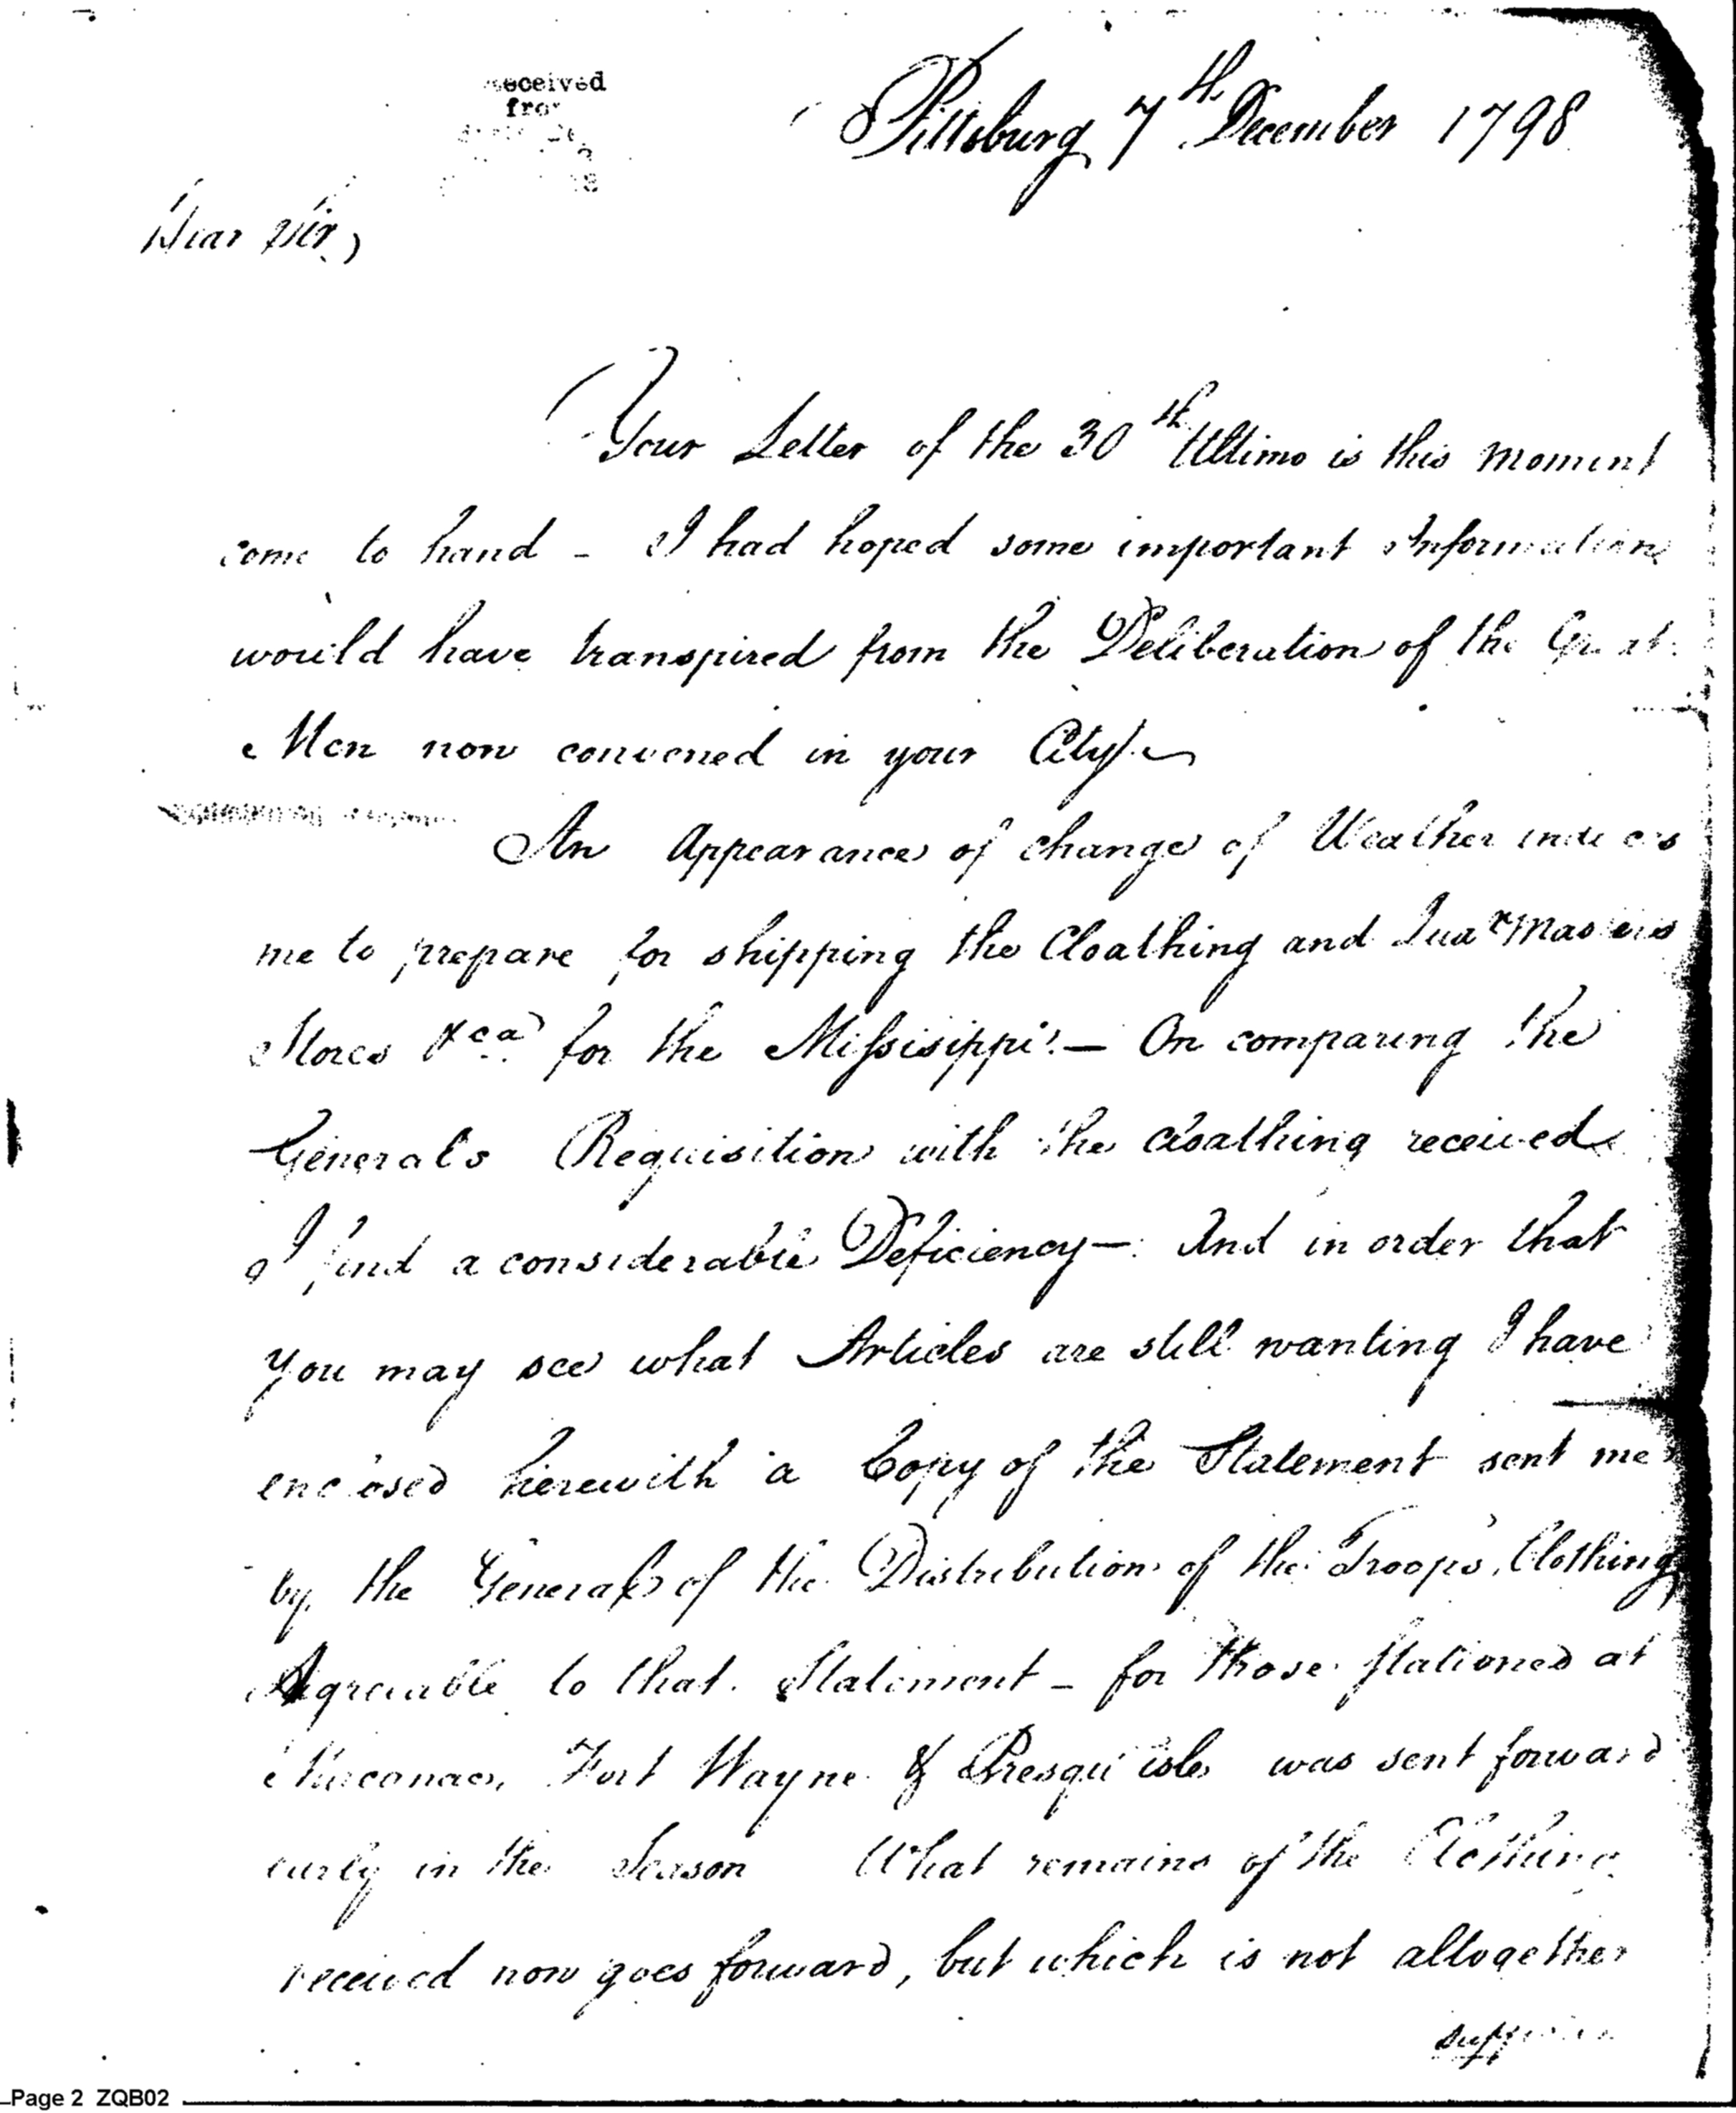 received
from
Pittsburg 7th December 1798
Dear Sir,
Your Letter of the 30th Ultimo is this moment
come to hand - I had hoped some important Information
would have transpired from the Deliberation of the Great
Men now convened in your City.—
An Appearance of change of Weather induces
me to prepare for shipping the Cloathing and Quar Masters
Stores &ca for the Missisippi.— On comparing the
Generals Requisition with the cloathing received
I find a considerable Deficiency— And in order that
you may see what Articles are still wanting I have
enclosed herewith a Copy of the Statement sent me
by the General of the Distribution of the Troops, Clothing
Agreeable to that Statement - for those stationed at
Fort Wayne & Presqu'isle was sent forward
early in the Season What remains of the Clothing
received now goes forward, but which is not altogether
Page 2 ZQB02